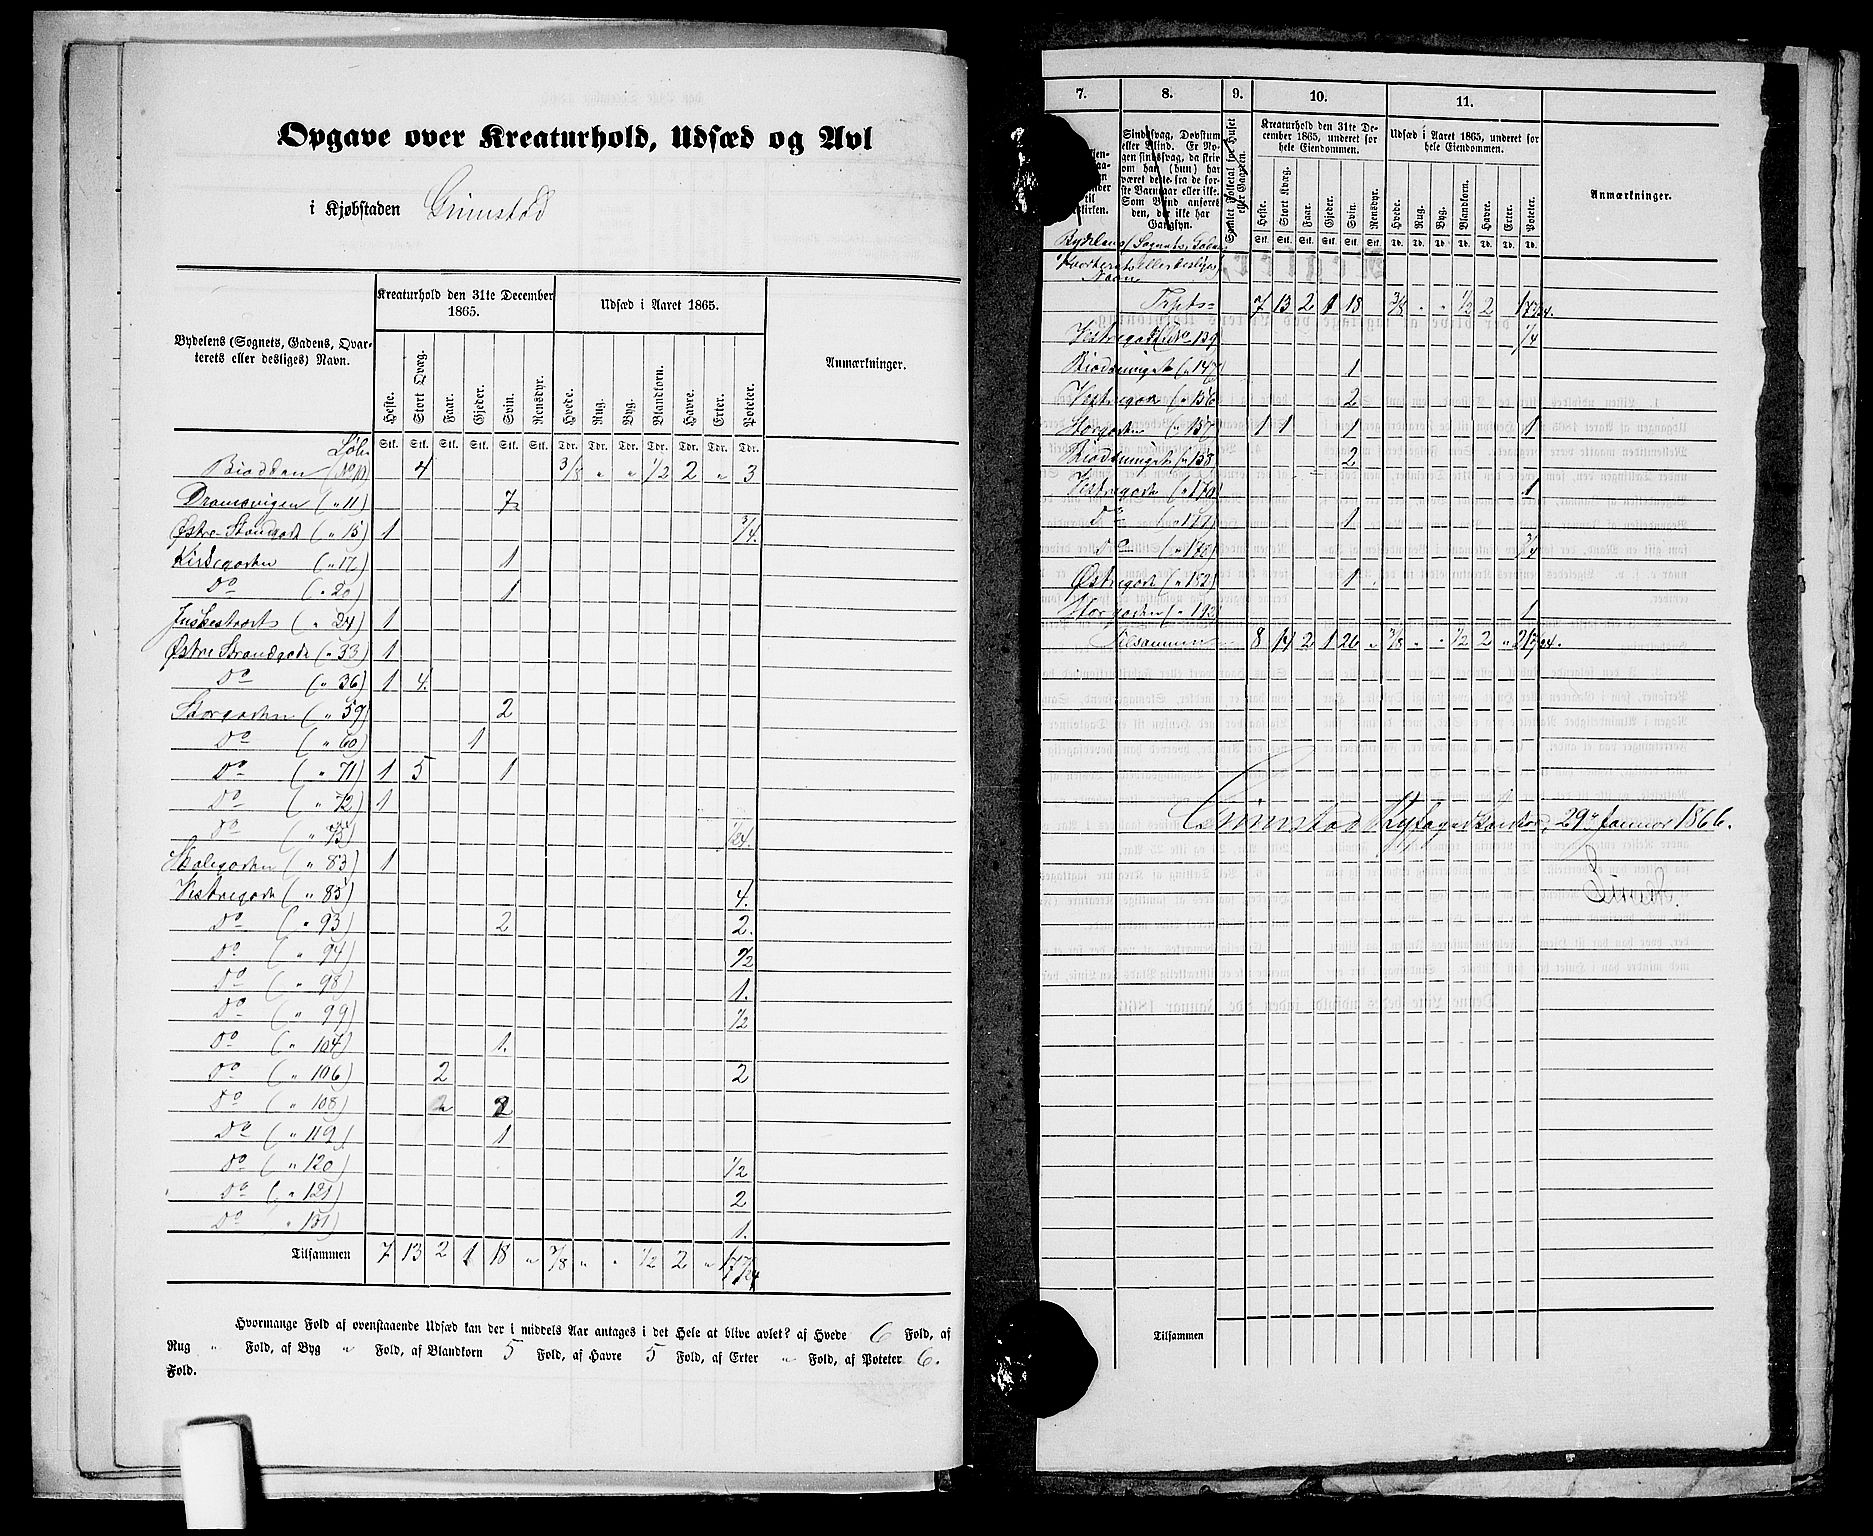 Opgave over Kreaturhold, Udsæd og Avl
i Kjøbstaden Grimstad
Bydelens (Sognets, Gadens, Qvarterets eller desliges) Navn.
Kreaturhold den 31te December 1865.
Udsæd i Aaret 1865.
Anmærkninger.
Heste. Stort Qvæg. Faar. Gjeder. Svin. Rensdyr. Hvede. Rug. Byg. Blandkorn. Havre. Erter. Poteter.
Stk. Stk. Stk. Stk. Stk. Stk. Tdr. Tdr. Tdr. Tdr. Tdr. Tdr. Tdr.
Biodden 4 3/8 " " 1/2 2 " 3
(" 11) 7
Østre Strandgade (" 15) 1 3/4.
Kirkegaden (" 17) 1
Do (" 20) 1
(" 24) 1
Østre Strandgade (" 33) 1
Do (" 36) 1 4.
Storgaden (" 59) 2
Do (" 60) 1
Do (" 71) 1 5 1
Do (" 72) 1
Do (" 75) 1/24.
Skolegaden (" 83) 1
Vestregade (" 85) 4.
Do (" 93) 2 2.
Do (" 94) 1/2
Do (" 98) 1.
Do (" 99) 1/2
Do (" 104) 1.
Do (" 106) 2 2
Do (" 108) 2
Do (" 119) 1
Do (" 120) 1/2
Do (" 121) 2
Do " 131) 1.
Tilsammen 7 13 2 1 18 " 3/8 " " 1/2 2 " 17 7/24
Hvormange Fold af ovenstaaende Udsæd kan der i middels Aar antages i det Hele at blive avlet? af Hvede 6 Fold, af
Rug " Fold, af Byg " Fold, af Blandkorn 5 Fold, af Havre 5 Fold, af Erter " Fold, af Poteter 6.
Fold.
7. 8. 9. 10. 11.
Sindssvag, Døvstum eller Blind. Er Nogen sindssvag, da skrives om han (hun) har været dette fra de første Barneaar eller ikke. Som Blind anføres den, der ikke har Gangsyn.
Samlet Folketal for Huset eller Gaarden.
Kreaturhold den 31te December 1865, underet for hele Eiendommen.
Udsæd i Aaret 1865, underet for hele Eiendommen.
Anmærkninger.
Heste. Stort Kvæg. Faar. Gjeder. Svin. Rensdyr. Hvede. Rug. Byg. Blandkorn. Havre. Erter. Poteter.
Stk. Stk. Stk. Stk. Stk. Stk. Td. Td. Td. Td. Td. Td. Td.
Bydelens (Sognets, Gadens,
Kvarterets eller desliges)
Navn
Trspt= 7 13 2 1 18 3/8 " " 1/2 2 17 7/24.
Vestregade (No 139 1/4
(" 147) 1
Vestregade (" 156 2
Storgaden (" 157) 1 1 1 1
(" 158) 2
Vestregade (" 170) 1
Do (" 177) 1
Do (" 180) 3/4
Østregade (" 182) 1
Storgaden (" 112) 1
Tilsammen 8 14 2 1 26 " 3/8 " " 1/2 2 " 21 7/24.
Grimstad Byfogedkontor, 29de Januar 1866.
Tilsammen